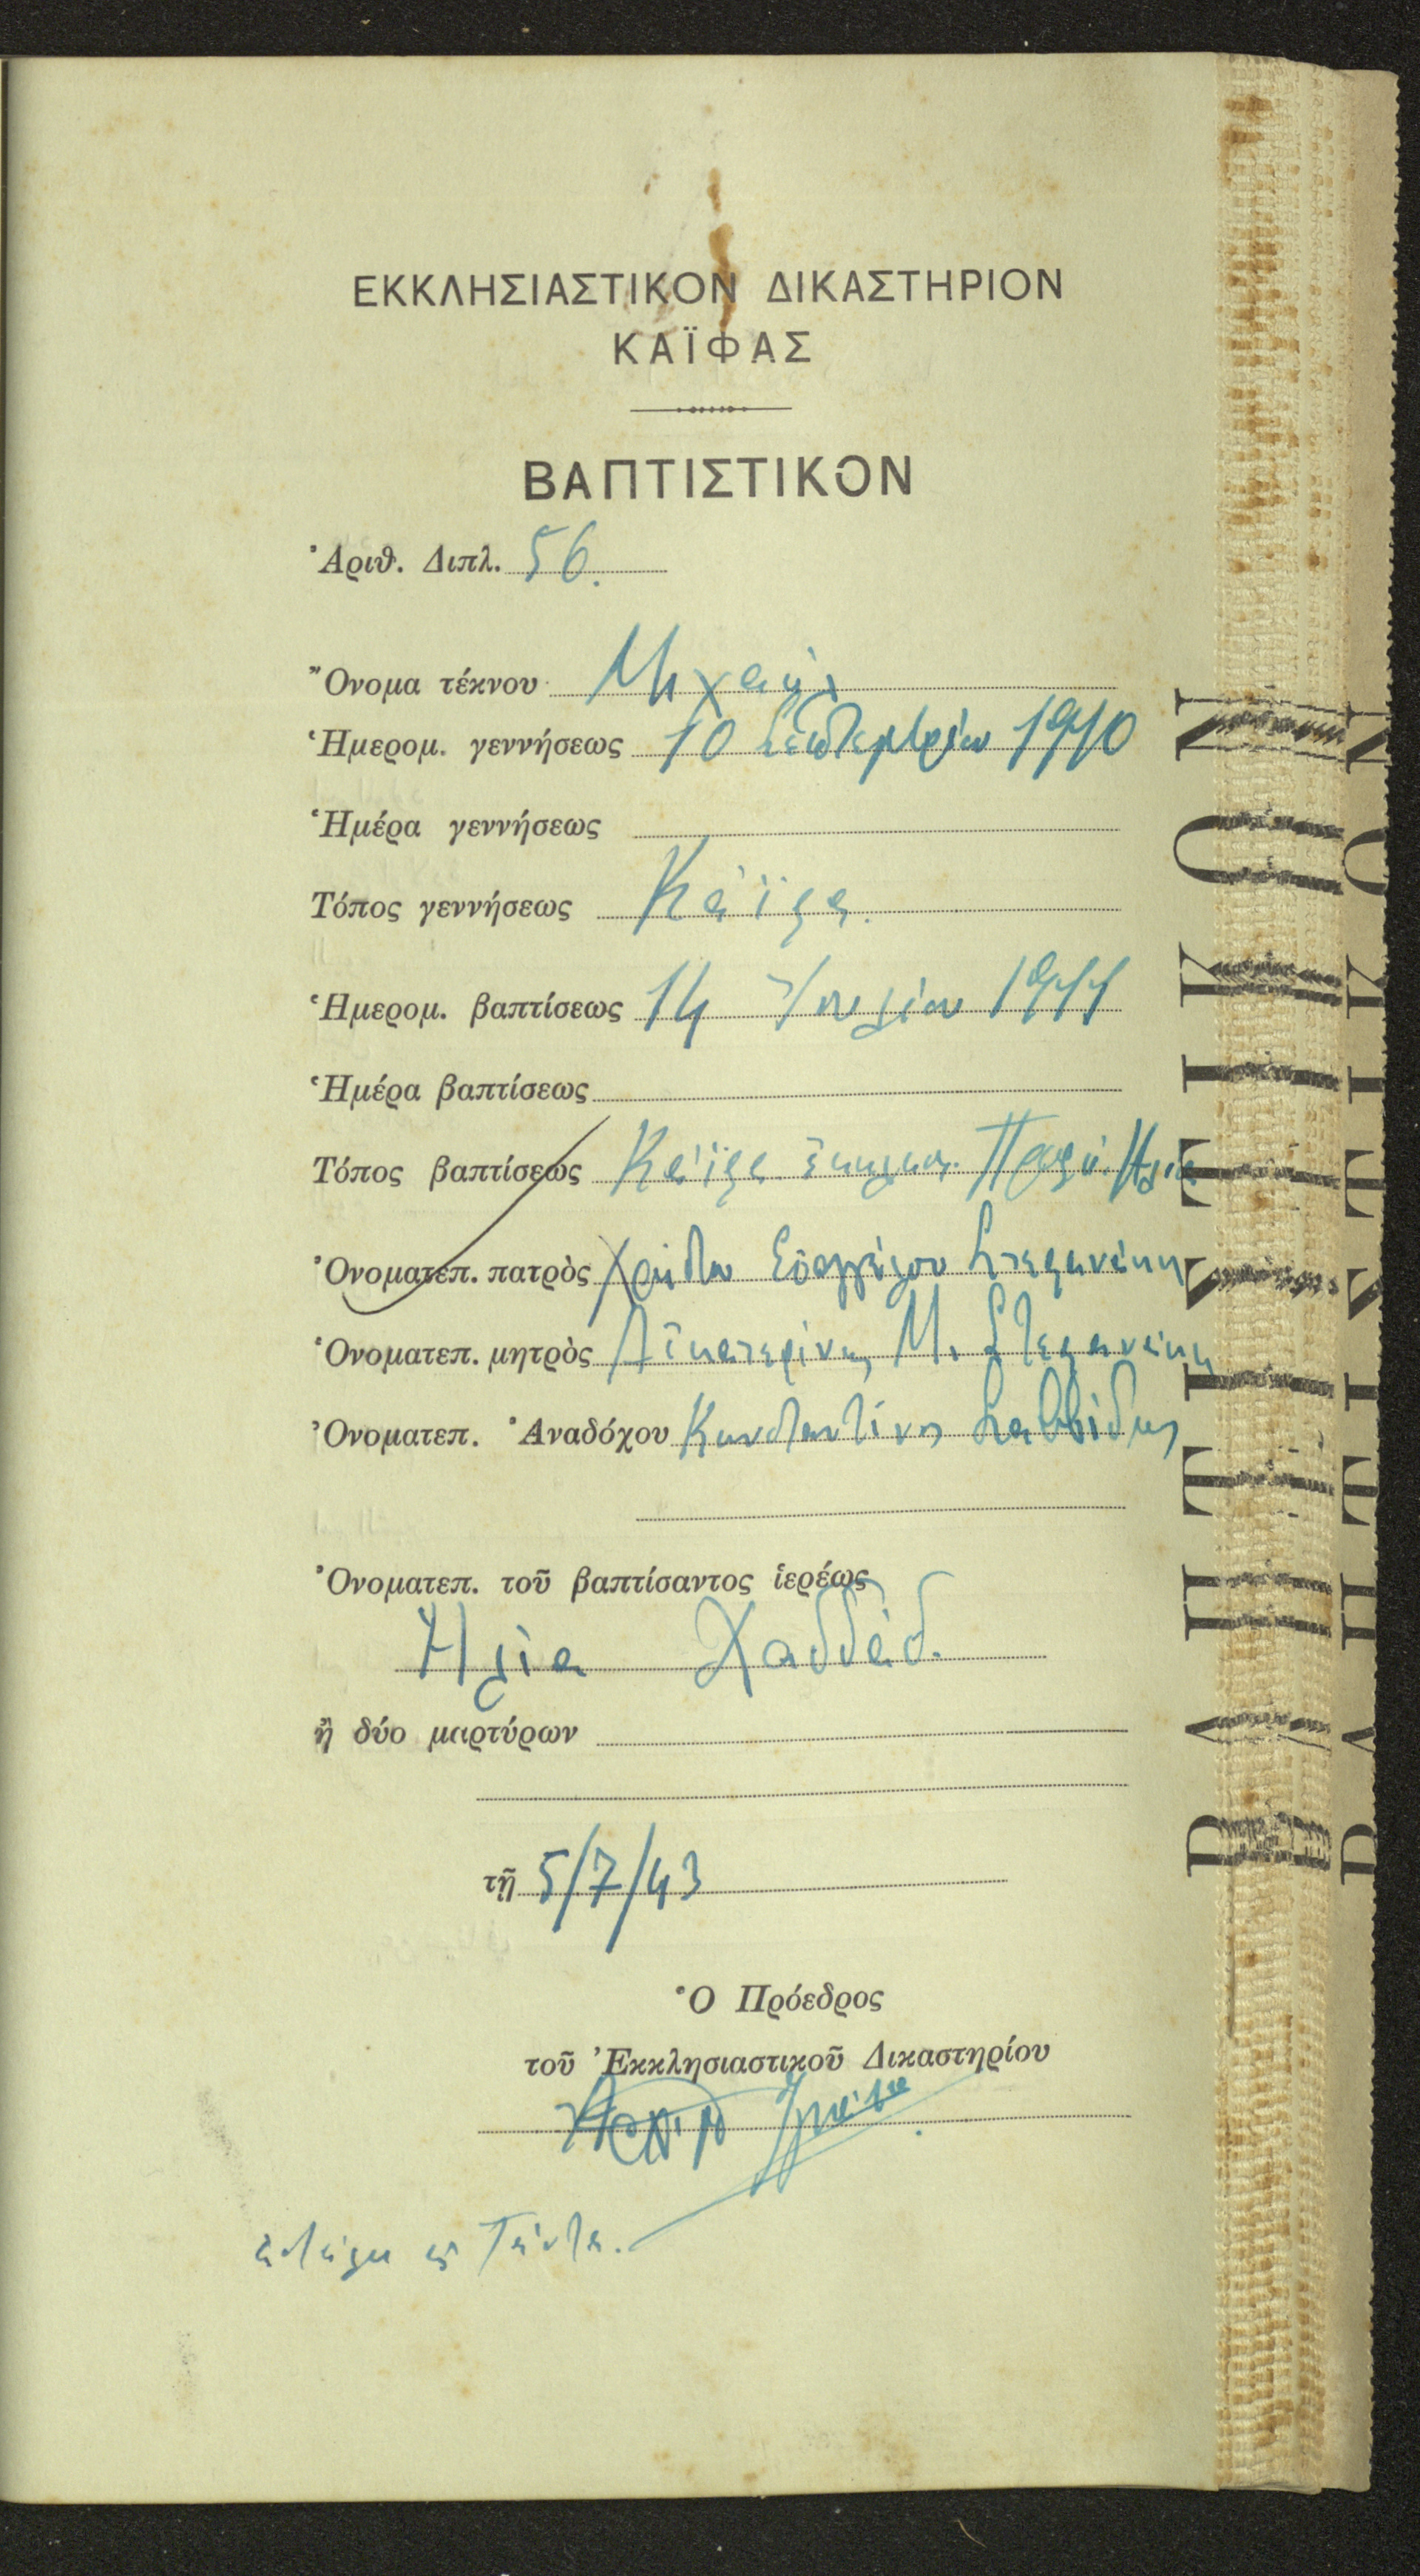 ΕΚΚΛΗΣΙΑΣΤΙΚΟΝ ΔΙΚΑΣΤΗΡΙΟΝ
ΚΑΪΦΑΣ
ΒΑΠΤΙΣΤΙΚΟΝ
Ἀριθ. Διπλ. 56.
Ὄνομα τέκνου Μιχαήλ
Ἡμερομ. γεννήσεως 10 Σεπτεμβρίου 1910
Ἡμέρα γεννήσεως
Τόπος γεννήσεως Κάϊφα.
Ἡμερομ. βαπτίσεως 14 Ἰουλίου 1911
Ἡμέρα βαπτίσεως
Τόπος βαπτίσεως Κάϊφα ἐκκλησ. Προφ. Ἠλία
Ὀνοματεπ. πατρὸς Χρίστου Εὐαγγέλου Στεφανάκη
Ὀνοματεπ. μητρὸς Αἰκατερίνης Μ. Στεφανάκη
Ὀνοματεπ. Ἀναδόχου Κωνσταντίνος Σαββίδης
Ὀνοματεπ. τοῦ βαπτίσαντος ἱερέως
Ἠλία Χαδδάδ.
ἢ δύο μαρτύρων
τῇ 5/7/43
Ὁ Πρόεδρος
τοῦ Ἐκκλησιαστικοῦ Δικαστηρίου
ΒΑΠΤΙΣΤΙΚΟΝ